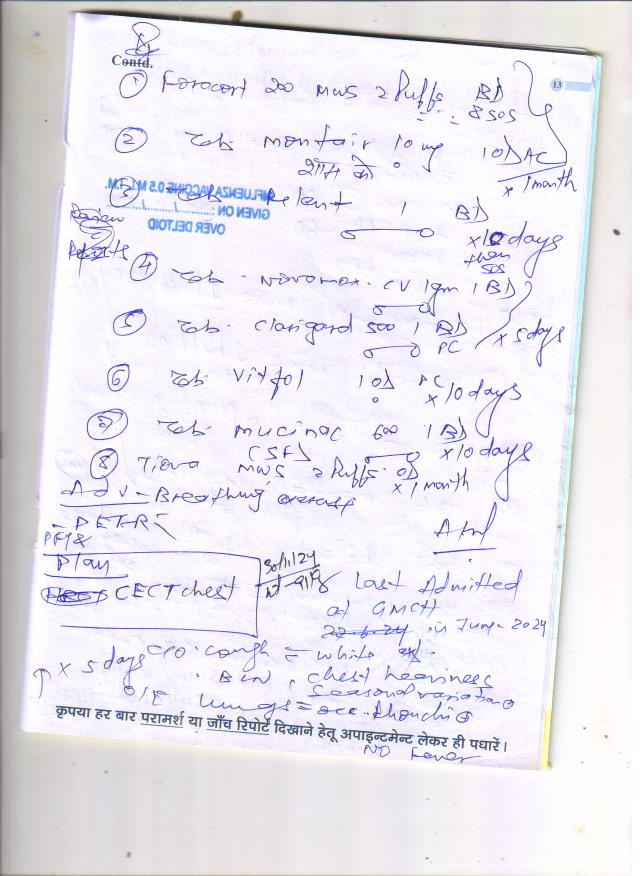 Rx
Contd.
13
① Foracort 200 MWS 2 Puffs BD
& SOS
② Tab Montair 10 mg 1 OD AC
शाम को
x 1 month
INFLUENZA VACCINE 0.5 ML I.M.
GIVEN ON ........../........../..........
OVER DELTOID
③ Tab Relent 1 BD
x 10 days
then
SOS
Review
Reports
④ Tab. Novamox. CV 1gm 1 BD
⑤ Tab. Clarigard 500 1 BD
PC
x 5 days
⑥ Tab. Vitfol 1 OD PC
x 10 days
⑦ Tab. Mucinac 600 1 BD
(SF)
x 10 days
⑧ Tiova MWS 2 Puffs. OD
x 1 month
Adv - Breathing exercise
Plan
CECT chest
30/11/24
Last Admitted
at GMCH
22-6-24 in June-2024
↑ x 5 days
c/o. cough = white
chest heaviness
Seasonal variation ⊕
O/E Lungs = occ. Rhonchi ⊕
कृपया हर बार परामर्श या जाँच रिपोर्ट दिखाने हेतू अपाइन्टमेन्ट लेकर ही पधारें।
No Fever